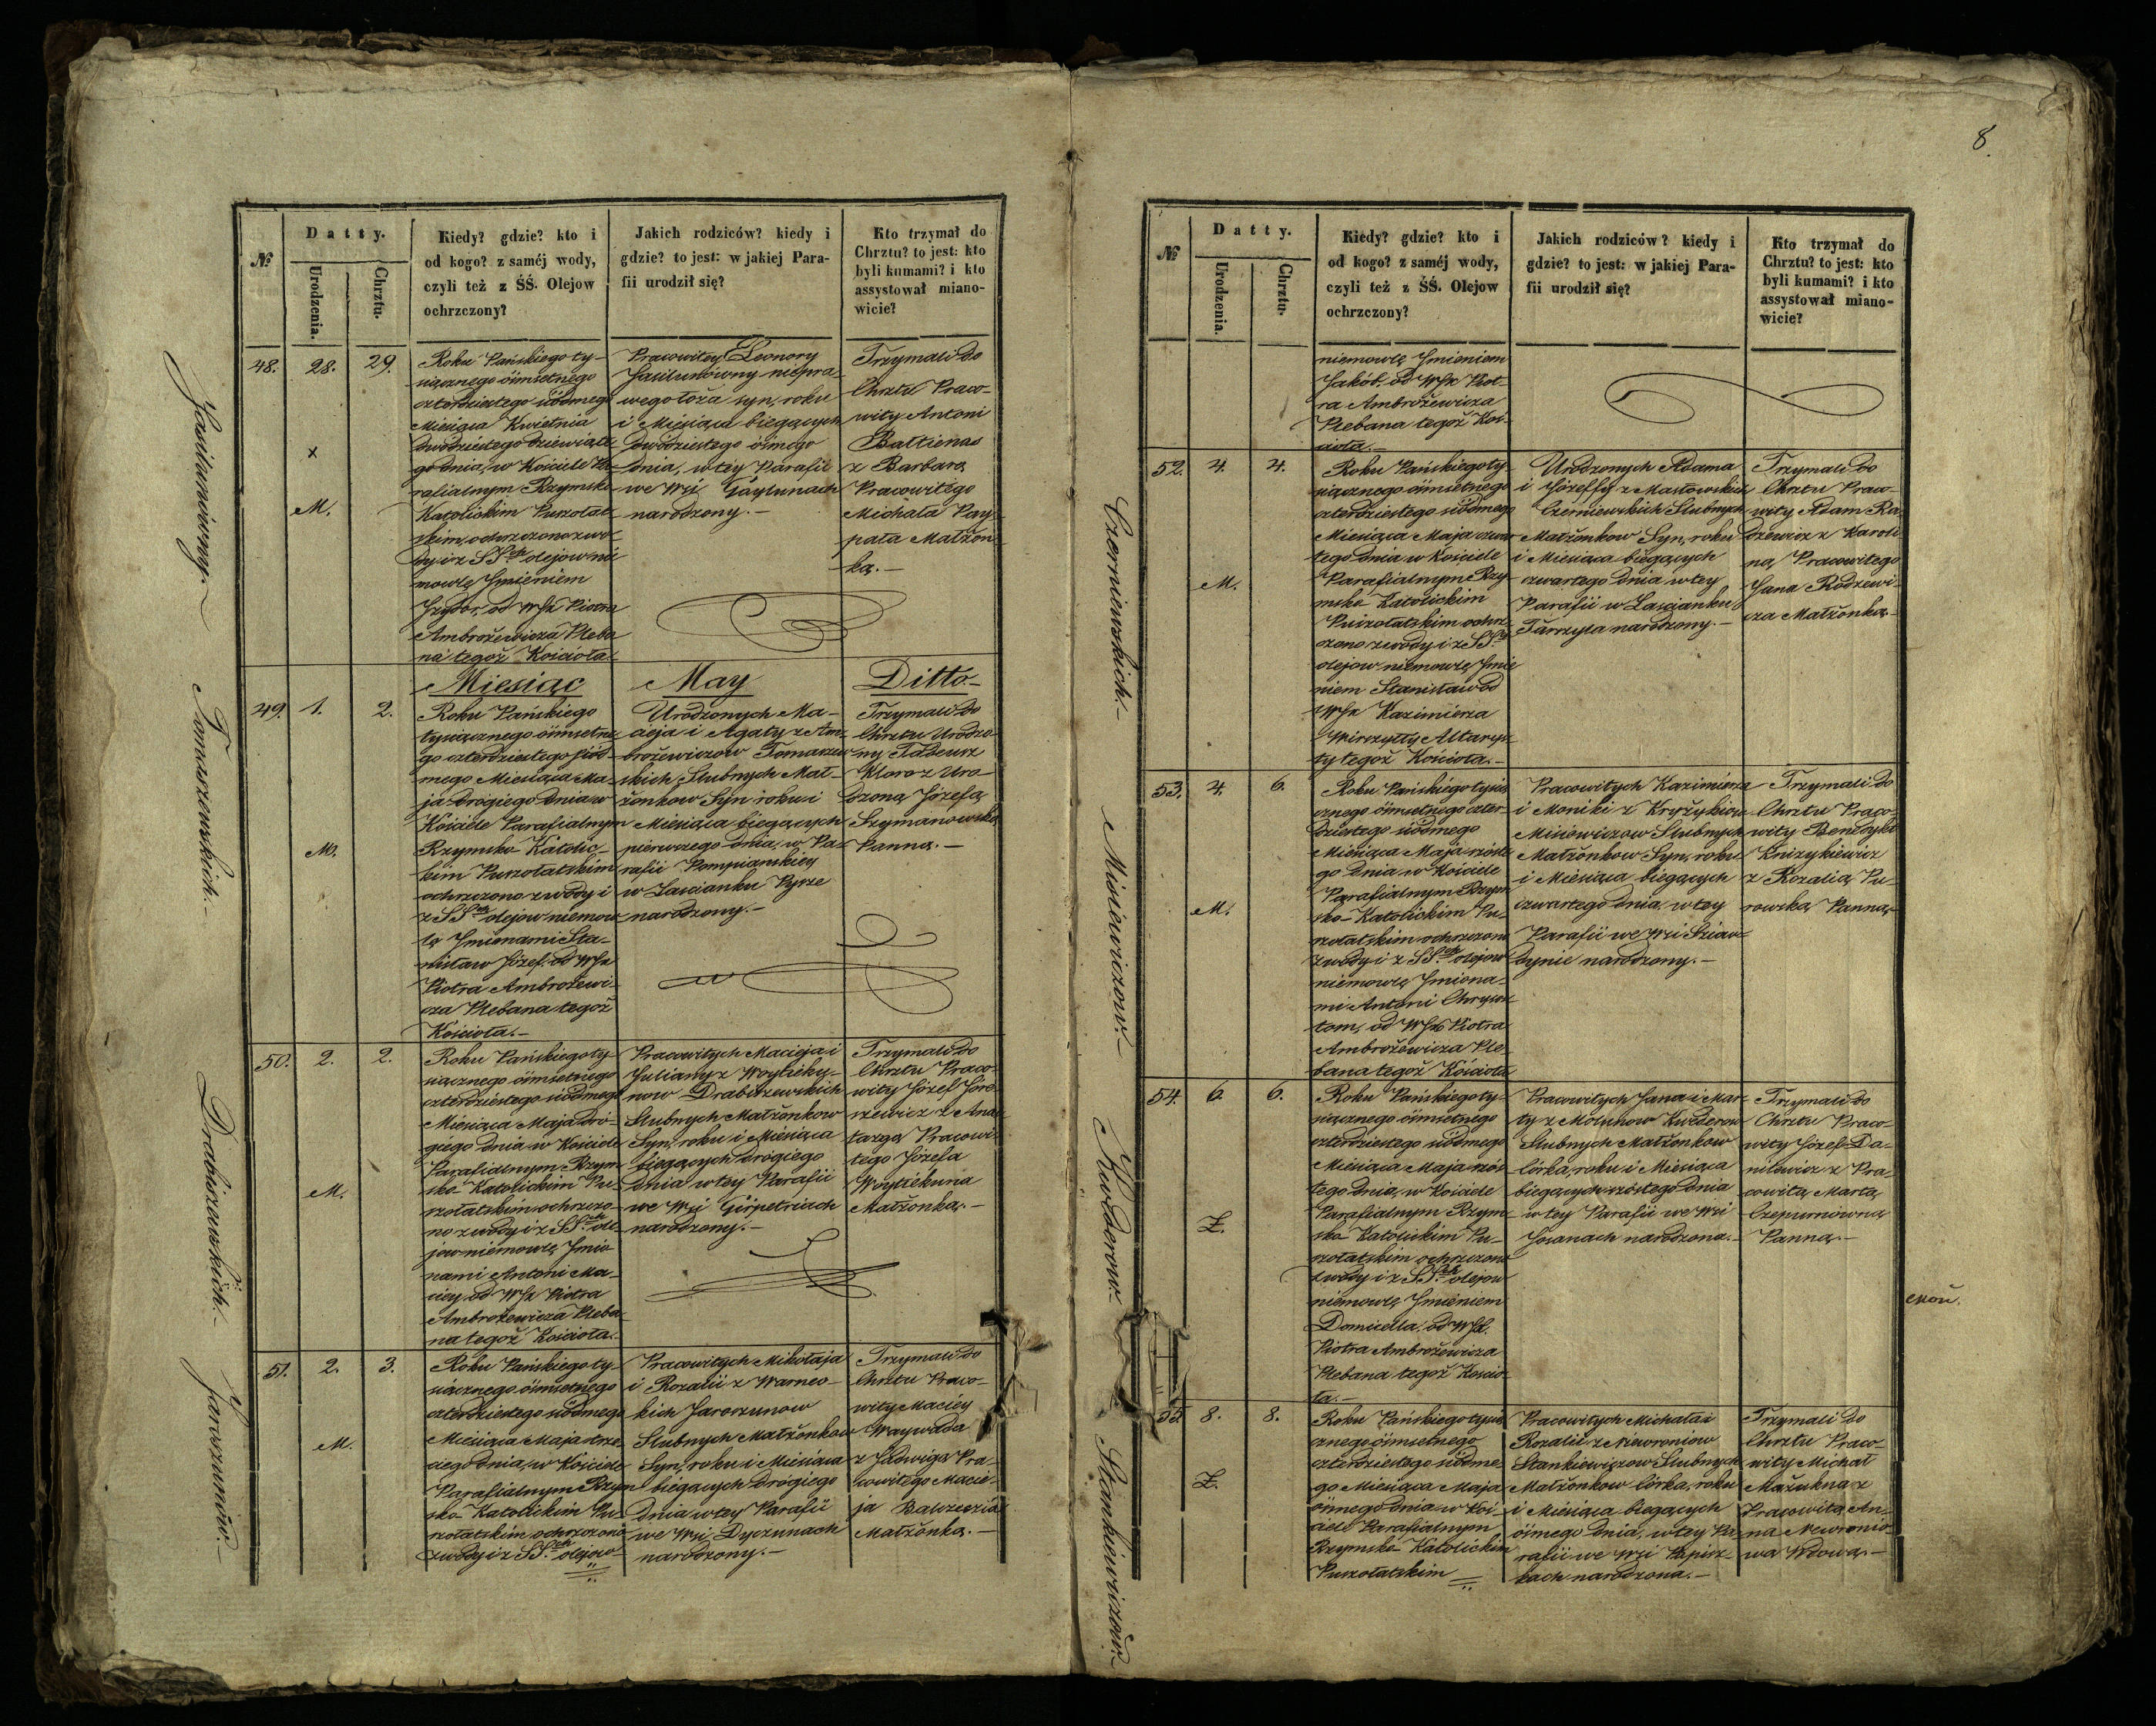 8.
№
Datty.
Urodzenia.
Chrztu.
Kiedy? gdzie? kto i
od kogo? z saméj wody,
czyli też z ŚŚ. Olejow
ochrzczony?
Jakich rodziców? kiedy i
gdzie? to jest: w jakiej Para-
fii urodził się?
Kto trzymał do
Chrztu? to jest: kto
byli kumami? i kto
assystował miano-
wicie?
Jasilunówny.
48.
28.
29.
x
M.
Roku Pańskiego ty-
siącznego ośmsetnego
czterdziestego siódmego
Miesiąca Kwietnia
dwódziestego dziewiąte
go dnia, w Kościele Pa-
rafialnym Rzymsko
Katolickim Puszołat-
skim, ochrzczono z wo-
dy i z SSch olejow nie
mowlę Jmieniem
Jzydor, od WJx Piotra
Ambrożewicza Pleba
na tegoż Kościoła.
Pracowitey Leonory
Jasilunówny niepra-
wego łoża syn, roku
i Miesiąca biegących
dwódziestego ósmego
dnia, w tey Parafii
we Wsi Gaylunach
narodzony.-
Trzymali do
Chrztu Praco-
wity Antoni
Baltienas
z Barbarą
Pracowitego
Michała Pay-
pała Małżon-
ką.-
Miesiąc May Ditto-
Tomaszewskich.-
49.
1.
2.
M.
Roku Pańskiego
tysiącznego ośmsetne
go czterdziestego siód-
mego Miesiąca Ma-
ja drógiego dnia w
Kościele Parafialnym
Rzymsko Katolic-
kim Puszołatskim
ochrzczono z wody i
z SSch olejow niemow
lę Jmionami Sta-
nisław Józef od WJx
Piotra Ambrożewi-
cza Plebana tegoż
Kościoła.-
Urodzonych Ma-
cieja i Agaty z Am-
brożewiczow Tomaszew
skich Slubnych Mał-
żonkow Syn roku i
Miesiąca biegących
pierwszego dnia, w Pa-
rafii Pompianskiey
w Zascianku Pyrze
narodzony.-
Trzymali do
Chrztu Urodzo
ny Tadeusz
Kloro z Uro-
dzoną Józefą
Szymanowską
Panną.-
Drabiszewskich.-
50.
2.
2.
M.
Roku Pańskiego ty-
siącznego ośmsetnego
czterdziestego siódmego
Miesiąca Maja dró-
giego dnia w Kościele
Parafialnym Rzym-
sko Katolickim Pu-
szołatskim ochrzczo-
no z wody i z SSch ole
jow niemowlę Jmio
nami Antoni Ma-
ciey od WJx Piotra
Ambrożewicza Pleba-
na tegoż Kościoła.
Pracowitych Macieja i
Julianny z Woytieku-
now Drabiszewskich
Slubnych Małżonkow
Syn, roku i Miesiąca
biegących drógiego
dnia w tey Parafii
we Wsi Girpetriach
narodzony.-
Trzymali do
Chrztu Praco-
wity Józef Jóro
szewicz z Ana
tazyą Pracowi-
tego Józefa
Woytiekuna
Małżonką.-
Jaroszunów.-
51.
2.
3.
M.
Roku Pańskiego ty-
siącznego ośmsetnego
czterdziestego siódmego
Miesiąca Maja trze-
ciego dnia, w Kościele
Parafialnym Rzym
sko Katolickim Pu-
szołatskim ochrzczono
z wody i z SSch olejow
Pracowitych Mikołaja
i Rozalii z Warnec-
kich Jaroszunow
Slubnych Małżonkow
Syn, roku i Miesiąca
biegących drógiego
dnia w tey Parafii
we Wsi Dyczunach
narodzony.-
Trzymali do
Chrztu Praco-
wity Maciéy
Waywada
z Jadwigą Pra-
cowitego Macie-
ja
Małżonką.-
№
Datty.
Urodzenia.
Chrztu.
Kiedy? gdzie? kto i
od kogo? z saméj wody,
czyli też z ŚŚ. Olejow
ochrzczony?
Jakich rodziców? kiedy i
gdzie? to jest: w jakiej Para-
fii urodził się?
Kto trzymał do
Chrztu? to jest: kto
byli kumami? i kto
assystował miano-
wicie?
niemowlę Jmieniem
Jakób, od WJx Piot-
ra Ambrożewicza
Plebana tegoż Koś-
cioła.-
Czerniewskich.-
52.
4.
4.
M.
Roku Pańskiego ty-
siącznego ośmsetnego
czterdziestego siódmego
Miesiąca Maja czwar
tego dnia w Kościele
Parafialnym Rzy-
msko Katolickim
Puszołatskim ochrz-
czono z wody i z SSch
olejow niemowlę Jmie
niem Stanisław od
WJx Kazimierza
Wirszyłły Altarys-
ty tegoż Kościoła.-
Urodzonych Adama
i Józeffy z Masłowskich
Czerniewskich Slubnych
Małżonkow Syn, roku
i Miesiąca biegących
czwartego dnia w tey
Parafii w Zascianku
Tarszyla narodzony.-
Trzymali do
Chrztu Praco-
wity Adam Ra
dzewicz z Karoli
ną Pracowitego
Jana Rodzewi-
cza Małżonką.-
Misiewiczow.-
53.
4.
6.
M.
Roku Pańskiego tysią
cznego ośmsetnego czter-
dziestego siódmego
Miesiąca Maja szóste
go dnia w Kościele
Parafialnym Rzym
sko-Katolickim Pu-
szołatskim ochrzczono
z wody i z SSch olejow
niemowlę Jmiona-
mi Antoni Chryzos
tom, od WJx Piotra
Ambrożewicza Ple-
bana tegoż Kościoła
Pracowitych Kazimierza
i Moniki z Kryżykiow
Misiewiczow Slubnych
Małżonkow Syn, roku
i Miesiąca biegących
czwartego dnia, w tey
Parafii we Wsi Sziaw-
dynie narodzony.-
Trzymali do
Chrztu Praco-
wity Benedykt
Knizykiewicz
z Rozalią Pu-
rowską Panną.-
Kwederow.-
54.
6.
6.
Ż.
Roku Pańskiego ty-
siącznego ośmsetnego
czterdziestego siódmego
Miesiąca Maja szós-
tego dnia, w Kościele
Parafialnym Rzym-
sko Katolickim Pu-
szołatskim ochrzczono
z wody i z SSch olejow
niemowlę Jmieniem
Domicella, od WJx.
Piotra Ambrożewicza
Plebana tegoż Koscio-
ła.-
Pracowitych Jana i Mar-
ty z Motunow Kwederow
Slubnych Małżonkow
Córka, roku i Miesiąca
biegących szóstego dnia
w tey Parafii we Wsi
Josanach narodzona.-
Trzymali do
Chrztu Praco-
wity Józef Da-
nilewicz z Pra-
cowitą Martą
Czepurnówną
Panną.-
Stankiewiczow.-
55.
8.
8.
Ż.
Roku Pańskiego tysią
cznego ośmsetnego
czterdziestego siódme-
go Miesiąca Maja
ósmego dnia w Koś-
ciele Parafialnym
Rzymsko Katolickim
Puszołatskim
Pracowitych Michała i
Rozalii z Niewroniow
Stankiewiczow Slubnych
Małżonkow Córka, roku
i Miesiąca biegących
ósmego dnia, w tey Pa-
rafii we Wsi Papisz-
kach narodzona.-
Trzymali do
Chrztu Praco-
wity Michał
Mażukna z
Pracowitą An-
ną Newronio-
wą Wdową.-